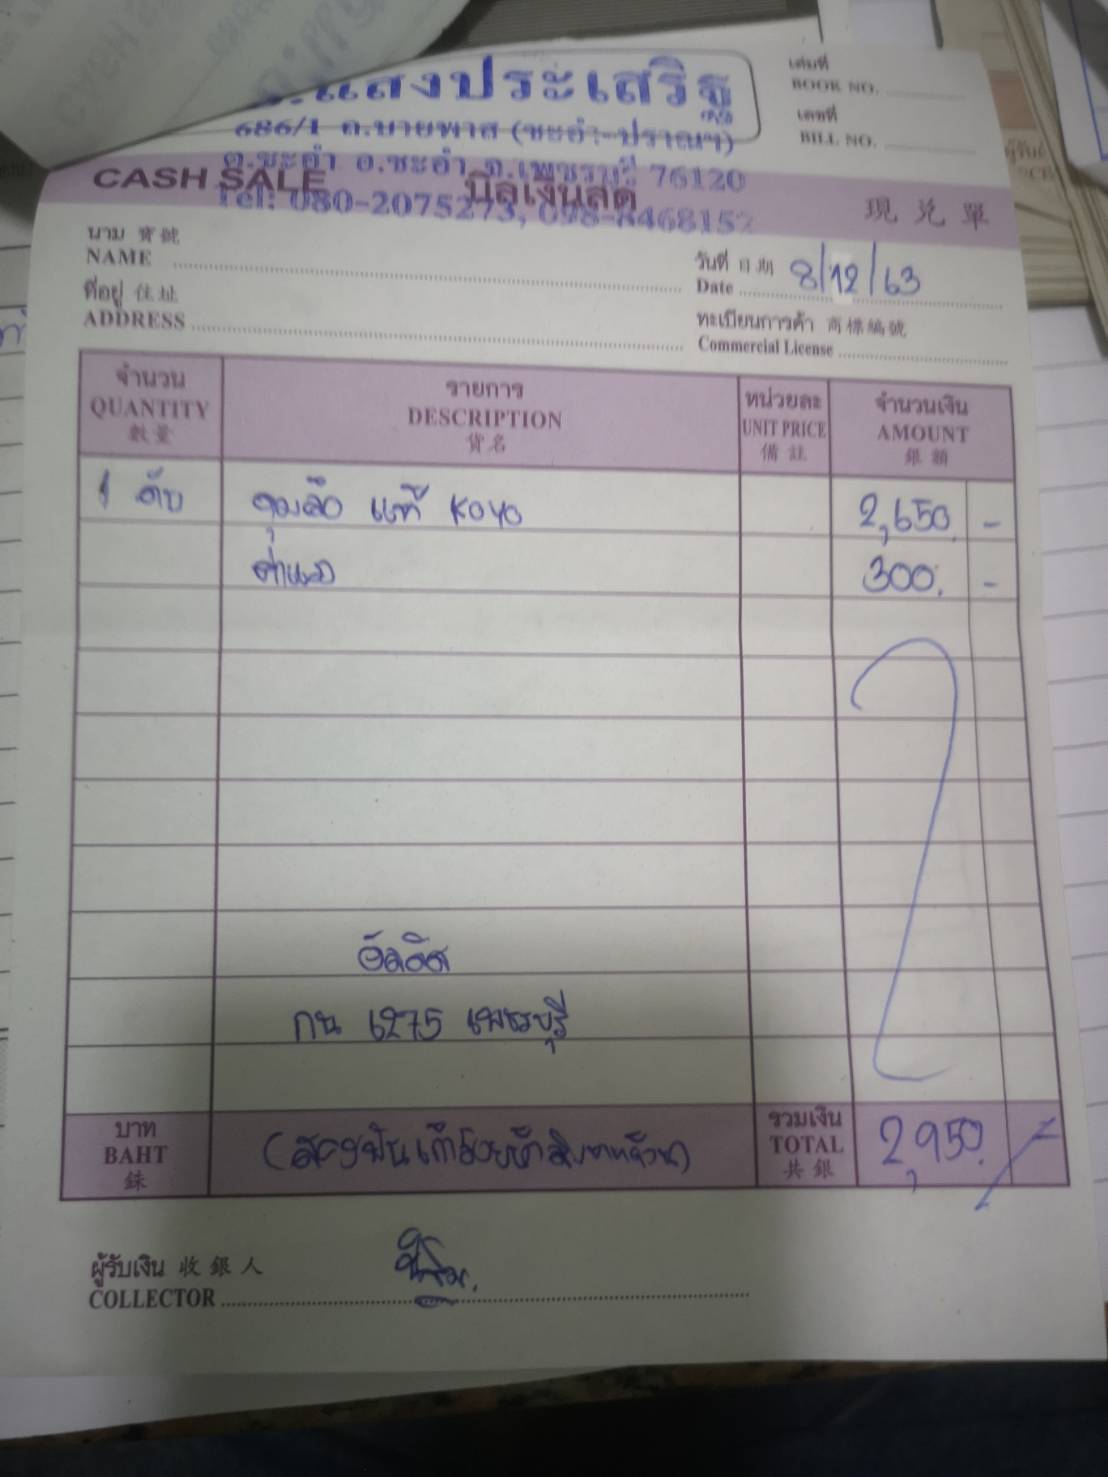 .แสงประเสริฐ
686/1 ถ.บายพาส (ชะอำ-ปราณฯ)
ต.ชะอำ อ.ชะอำ จ.เพชรบุรี 76120
Tel: 080-2075273, 098-8468152
เล่มที่
BOOK NO.
เลขที่
BILL NO.
CASH SALE บิลเงินสด 現兑單
นาม 寶號
NAME
วันที่ 日期
Date 8/12/63
ที่อยู่ 住址
ADDRESS
ทะเบียนการค้า 商標編號
Commercial License
จำนวน รายการ หน่วยละ จำนวนเงิน
QUANTITY DESCRIPTION UNIT PRICE AMOUNT
數量 貨名 備註 銀額
1 ตับ ดุมล้อ แท้ KOYO 2,650. -
ค่าแรง 300. -
กน 6275 เพชรบุรี
บาท รวมเงิน
BAHT (สองพันเก้าร้อยห้าสิบบาทถ้วน) TOTAL 2,950.-
銖 共銀
ผู้รับเงิน 收銀人
COLLECTOR